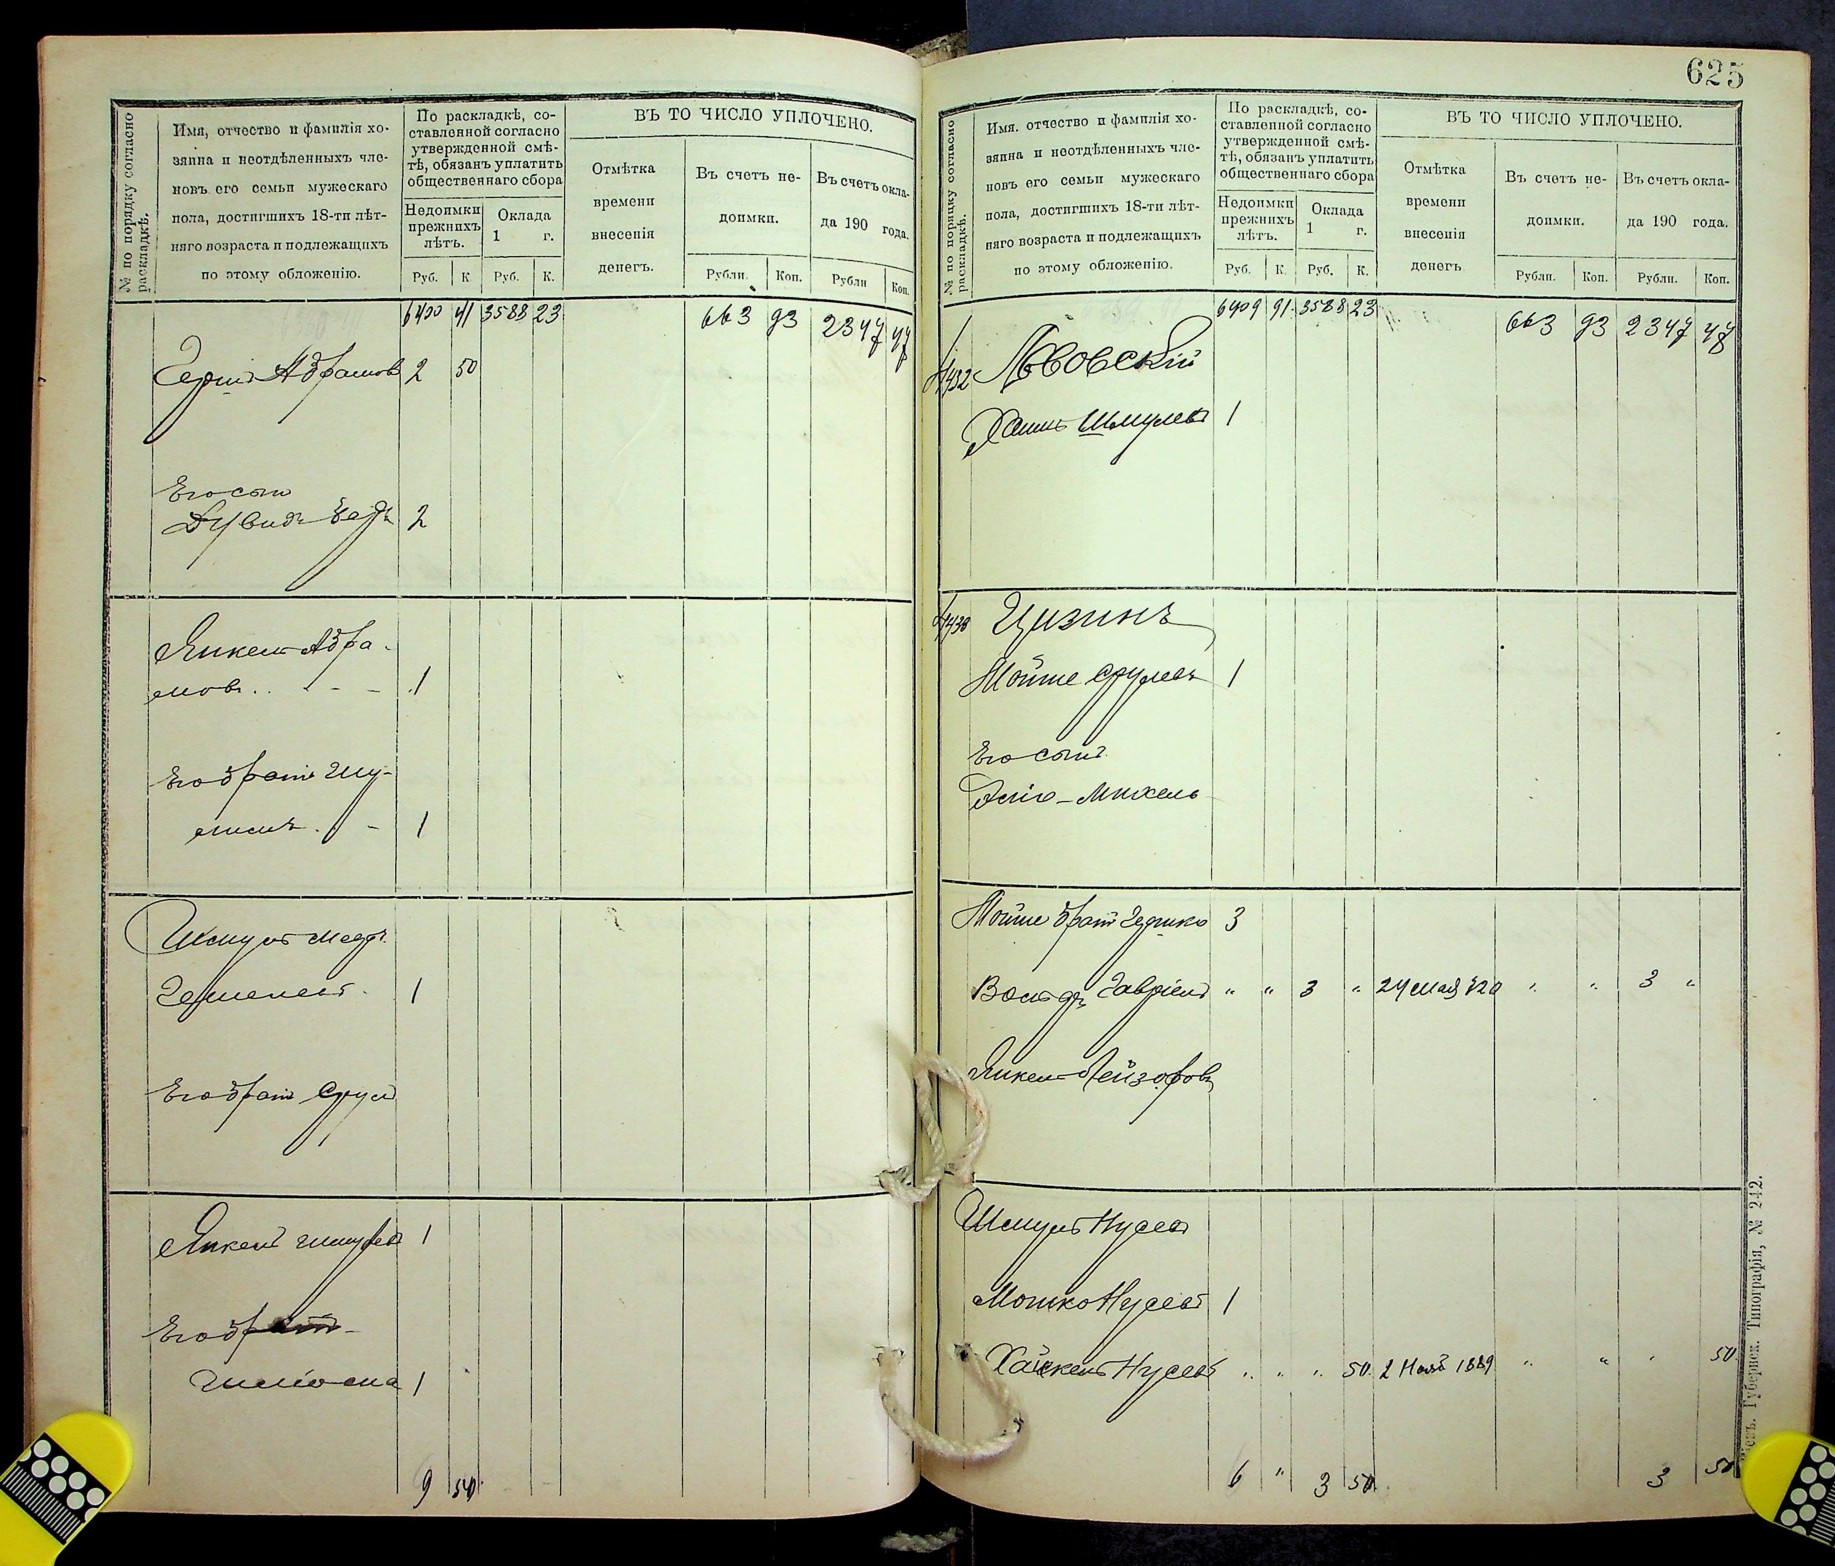 № по порядку согласно раскладкѣ.
Имя, отчество и фамилія хо-
зяина и неотдѣленныхъ чле-
новъ его семьи мужескаго
пола, достигшихъ 18-ти лѣт-
няго возраста и подлежащихъ
по этому обложенію.
По раскладкѣ, со-
ставленной согласно
утвержденной смѣ-
тѣ, обязанъ уплатить
общественнаго сбора
Недоимки
прежнихъ
лѣтъ.
Оклада
1 г.
Руб. К. Руб. К.
ВЪ ТО ЧИСЛО УПЛОЧЕНО.
Отмѣтка
времени
внесенія
денегъ.
Въ счетъ не-
доимки.
Въ счетъ окла-
да 190 года.
Рубли. Коп. Рубли Коп.
6400 41 3588 23 663 93 2347 47
Герш Абрамов 2 50
Его сын
Дувид 2
Янкель Абра-
мовъ 1
Его братъ Шу-
1
Шмуль
1
Его братъ Сруль
Янкель Шмулев 1
Его братъ
Шліома 1
9 50
625
№ по порядку согласно раскладкѣ.
Имя. отчество и фамилія хо-
зяина и неотдѣленныхъ чле-
новъ его семьи мужескаго
пола, достигшихъ 18-ти лѣт-
няго возраста и подлежащихъ
по этому обложенію.
По раскладкѣ, со-
ставленной согласно
утвержденной смѣ-
тѣ, обязанъ уплатить
общественнаго сбора
Недоимки
прежнихъ
лѣтъ.
Оклада
1 г.
Руб. К. Руб. К.
ВЪ ТО ЧИСЛО УПЛОЧЕНО.
Отмѣтка
времени
внесенія
денегъ.
Въ счетъ не-
доимки.
Въ счетъ окла-
да 190 года.
Рубли. Коп. Рубли. Коп.
6409 91 3588 23 663 93 2347 47
Львовскій
Хаимъ Шмулев 1
Цизинъ
Мойше Срулев 1
Его сынъ
Михель
Мойше братъ Гершко 3
Гавріель " " 3 " 24 Мая " " 3 "
Янкель Лейзоровъ
Шмуль Нусев
Мошко Нусев 1
Хайкель Нусев " " " 50 2 Нояб 1889 " " " 50
6 " 3 50 3 50
Губернск. Типографія, № 242.